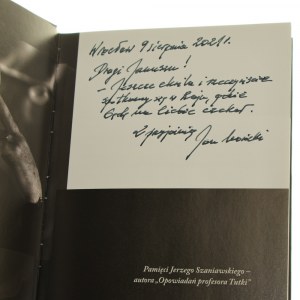 Wrocław 9 sierpnia 2021 r.
Drogi Januszu!
– Jeszcze chwila i
spotkamy się w Raju, gdzie
będę na Ciebie czekał.
Z przyjaźnią Jan
Pamięci Jerzego Szaniawskiego –
autora „Opowiadań profesora Tutki”